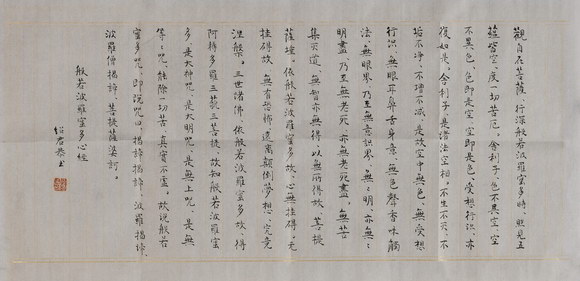 觀自在菩薩。行深般若波羅蜜多時。照見五
蘊皆空。度一切苦厄。舍利子。色不異空。空
不異色。色即是空。空即是色。受想行識。亦
復如是。舍利子。是諸法空相。不生不滅。不
垢不淨。不增不減。是故空中無色。無受想
行識。無眼耳鼻舌身意。無色聲香味觸
法。無眼界乃至無意識界。無々明亦無々
明盡。乃至無老死。亦無老死盡。無苦
集滅道。無智亦無得。以無所得故。菩提
薩埵。依般若波羅蜜多故。心無挂礙。无
挂礙故。無有恐怖。遠離顛倒夢想。究竟
涅槃。三世諸佛。依般若波羅蜜多故。得
阿耨多羅三藐三菩提。故知般若波羅蜜
多。是大神咒。是大明咒。是無上咒。是無
等々咒。能除一切苦。真實不虛。故說般若
蜜多咒。即說咒曰。揭諦揭諦。波羅揭諦。
波羅僧揭諦。菩提薩婆訶。
般若波羅蜜多心經